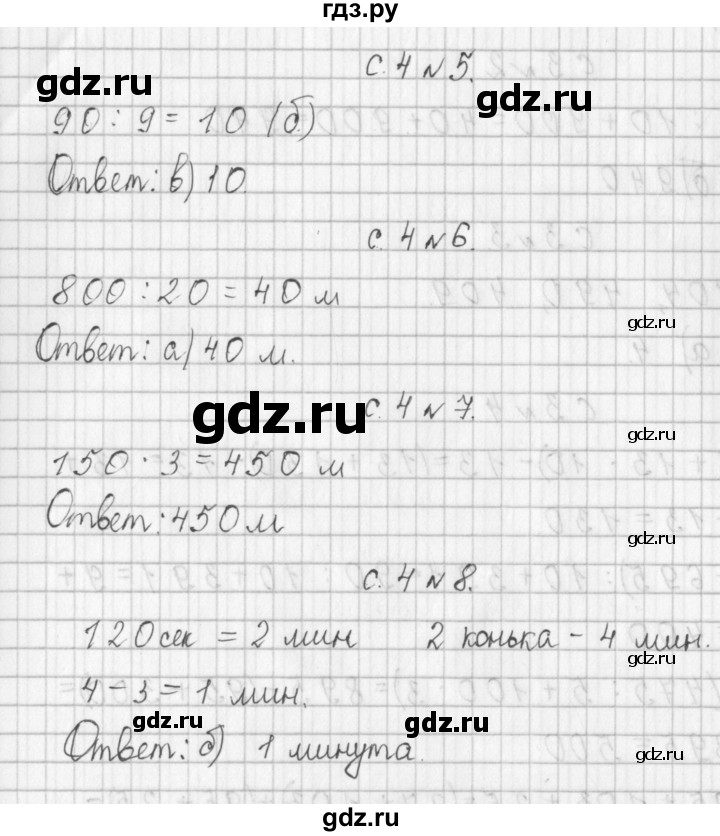 гдз.ру
с. 4 № 5.
gdz.ru
gdz.ru
90 : 9 = 10 (б)
Ответ: в) 10.
с. 4 № 6.
800 : 20 = 40 м
gdz.ru
Ответ: а) 40 м.
gdz.ru
с. 4 № 7.
gdz.ru
150 · 3 = 450 м
Ответ: 450 м
gdz.ru
с. 4 № 8.
120 сек = 2 мин 2 конька - 4 мин.
gdz.ru
4 - 3 = 1 мин.
gdz.ru
gdz.ru
Ответ: б) 1 минута.
gdz.ru
gdz.ru